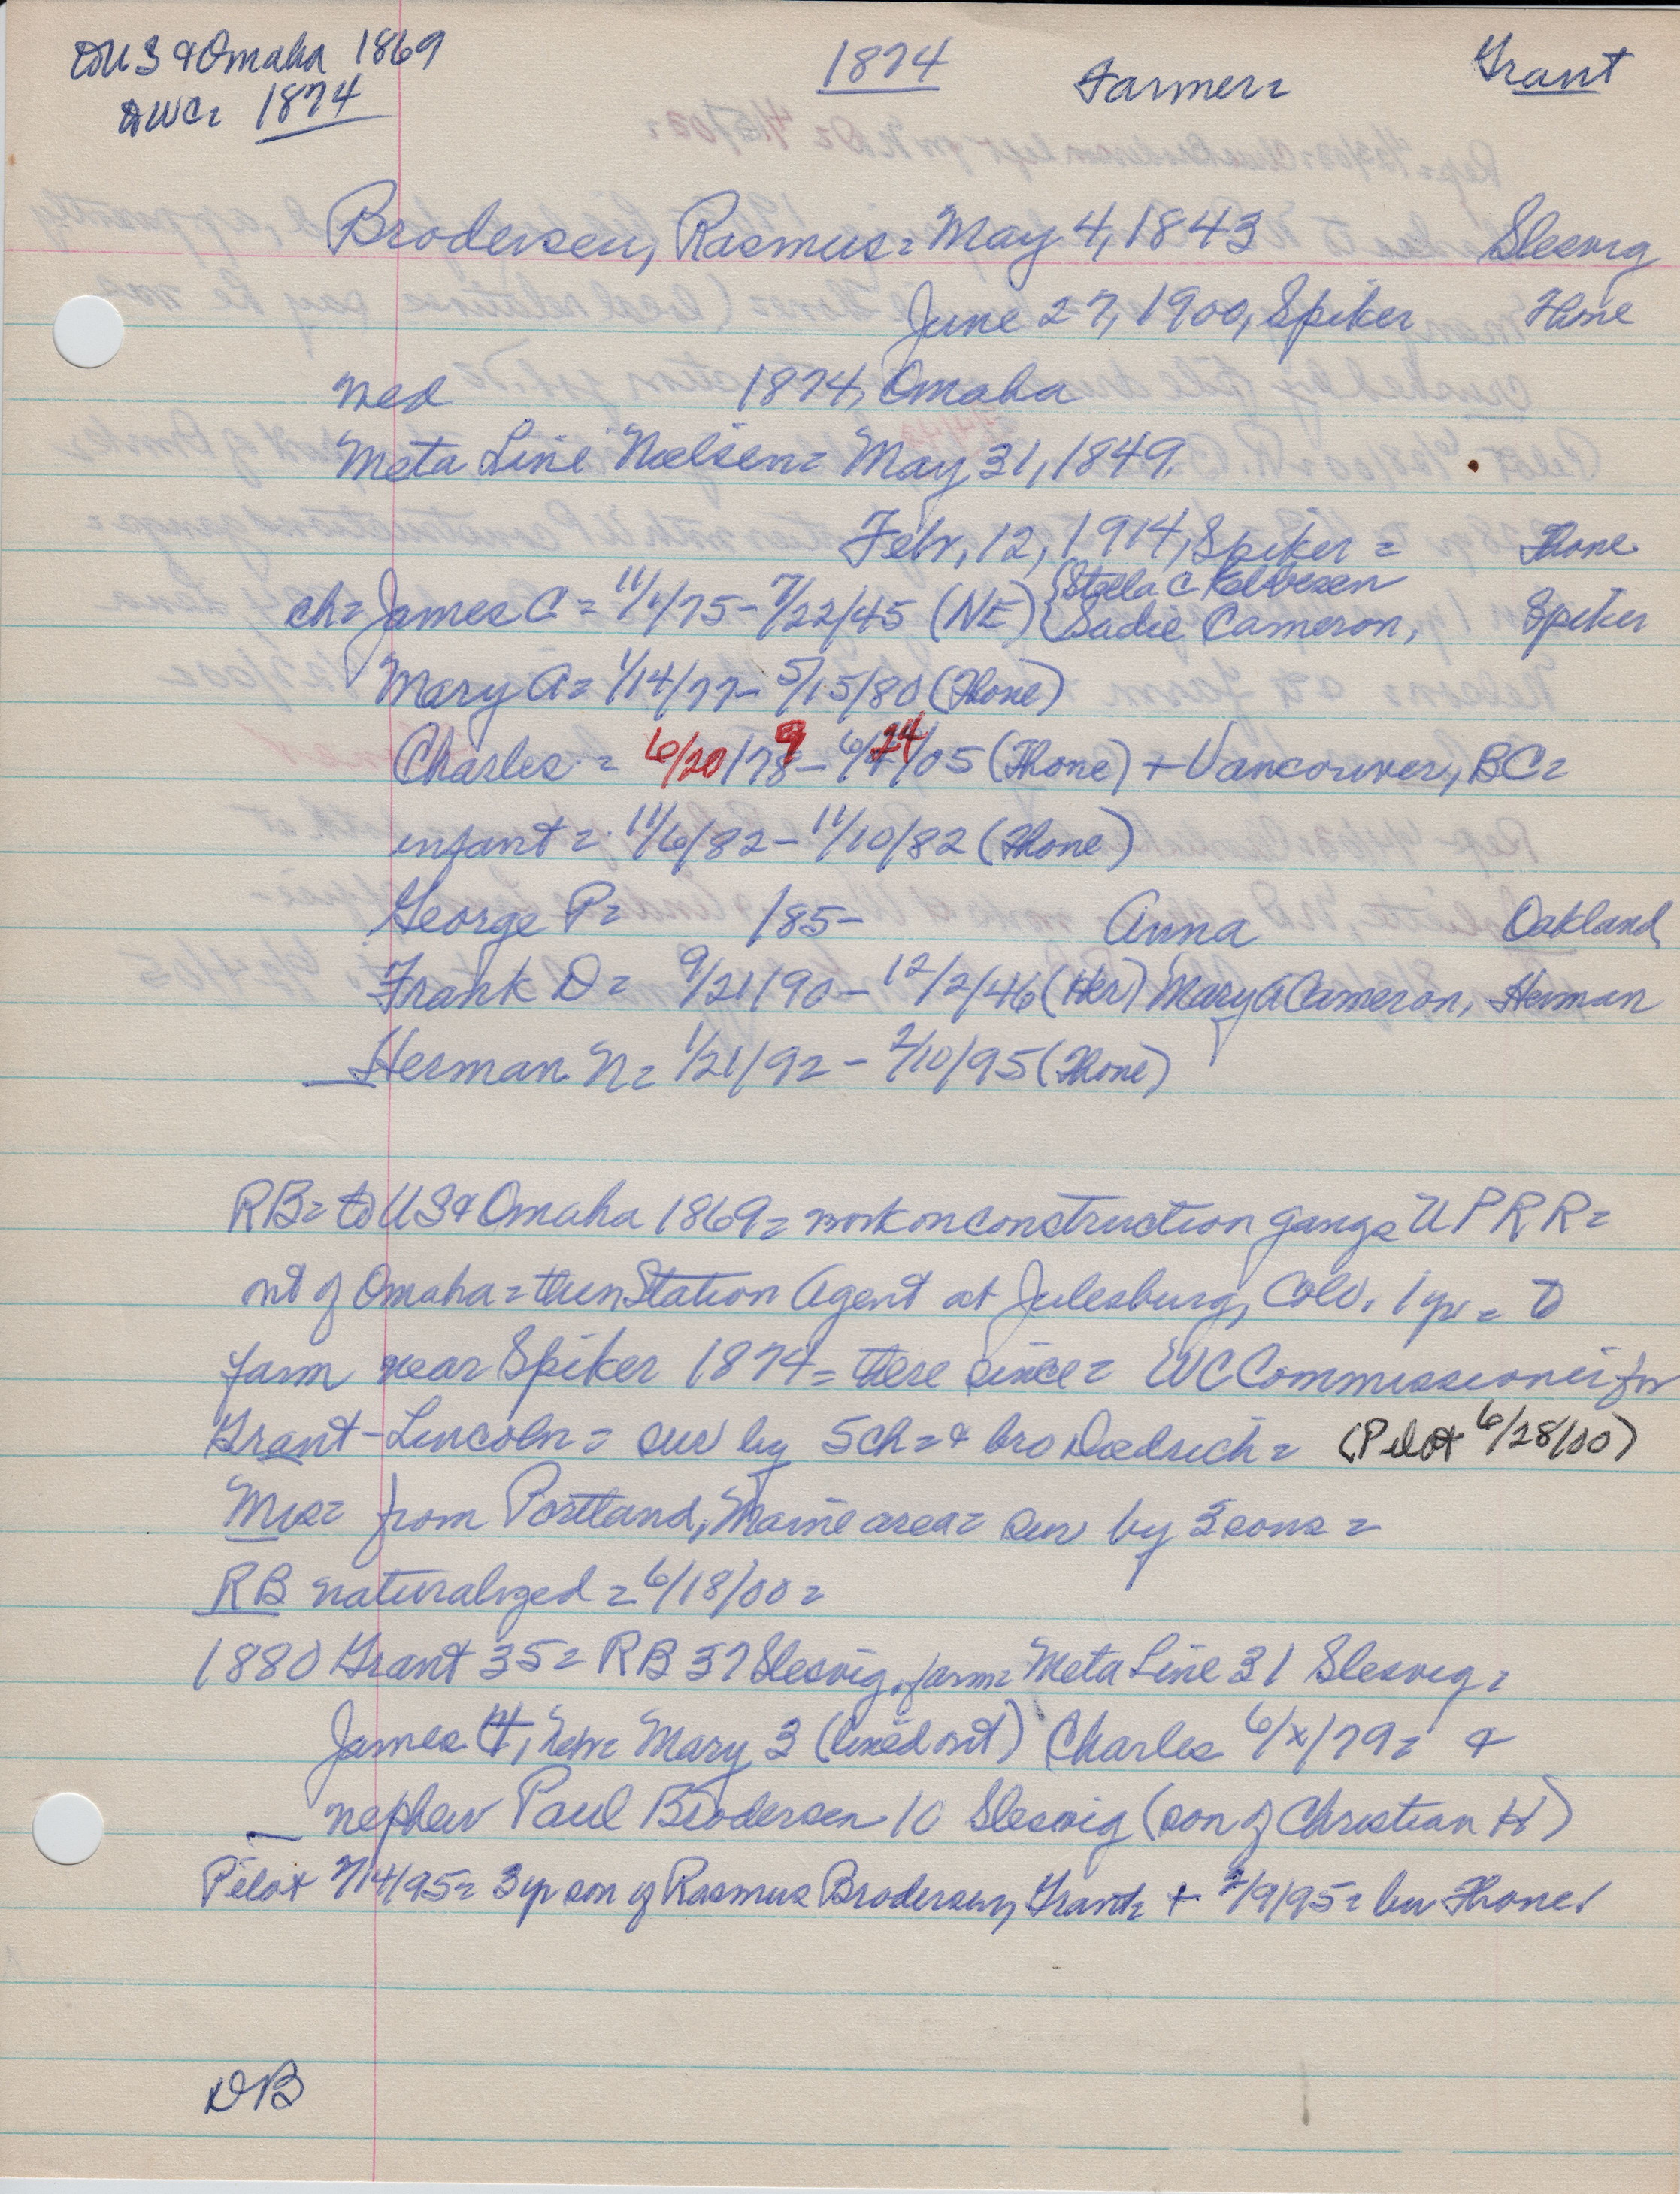 to US & Omaha 1869
to WC= 1874
1874 Farmer= Grant
Brodersen, Rasmus= May 4, 1843 Slesvig
June 27, 1900, Spiker Thone
wed 1874, Omaha
Meta Line Nielsen= May 31, 1849.
Febr, 12, 1914, Spiker = Thone
Stella C Kebbesen
ch= James C = 11/1/75 - 7/22/45 (NE) { Sadie Cameron, Spiker
Mary A= 1/14/77 - 5/15/80 (Thone)
Charles = 6/20/79 - 6/24/05 (Thone) + Vancouver, BC=
infant = 11/6/82 - 11/10/82 (Thone)
George P= /85- Anna Oakland
Frank D= 9/21/90 - 12/2/46 (Her) Mary A Cameron, Herman
Herman N= 1/21/92 - 2/10/95 (Thone)
RB= to US & Omaha 1869= work on construction gangs UPRR=
out of Omaha= then Station Agent at Julesburg, Colo. 1 yr = to
farm near Spiker 1874= there since= WC Commissioner for
Grant-Lincoln= sur by 5 ch= & bro Diedrich= (Pilot 6/28/00)
Mrs= from Portland, Maine area= sur by 3 sons =
RB naturalized = 6/18/00=
1880 Grant 35= RB 37 Slesvig, farm= Meta Line 31 Slesvig=
James 4, Neb= Mary 3 (lined out) Charles 6/x/79= &
nephew Paul Brodersen 10 Slesvig (son of Christian H)
Pilot 2/14/95= 3 yr son of Rasmus Brodersen, Grant + 2/9/95= bur Thone
DB